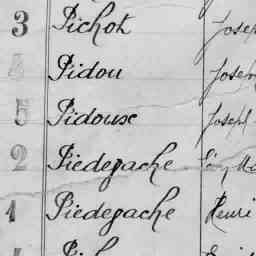 3 Pichot Josep
4 Pidou Josep
5 Pidoux Joseph
2 Piedegache
1 Piedegache Henri